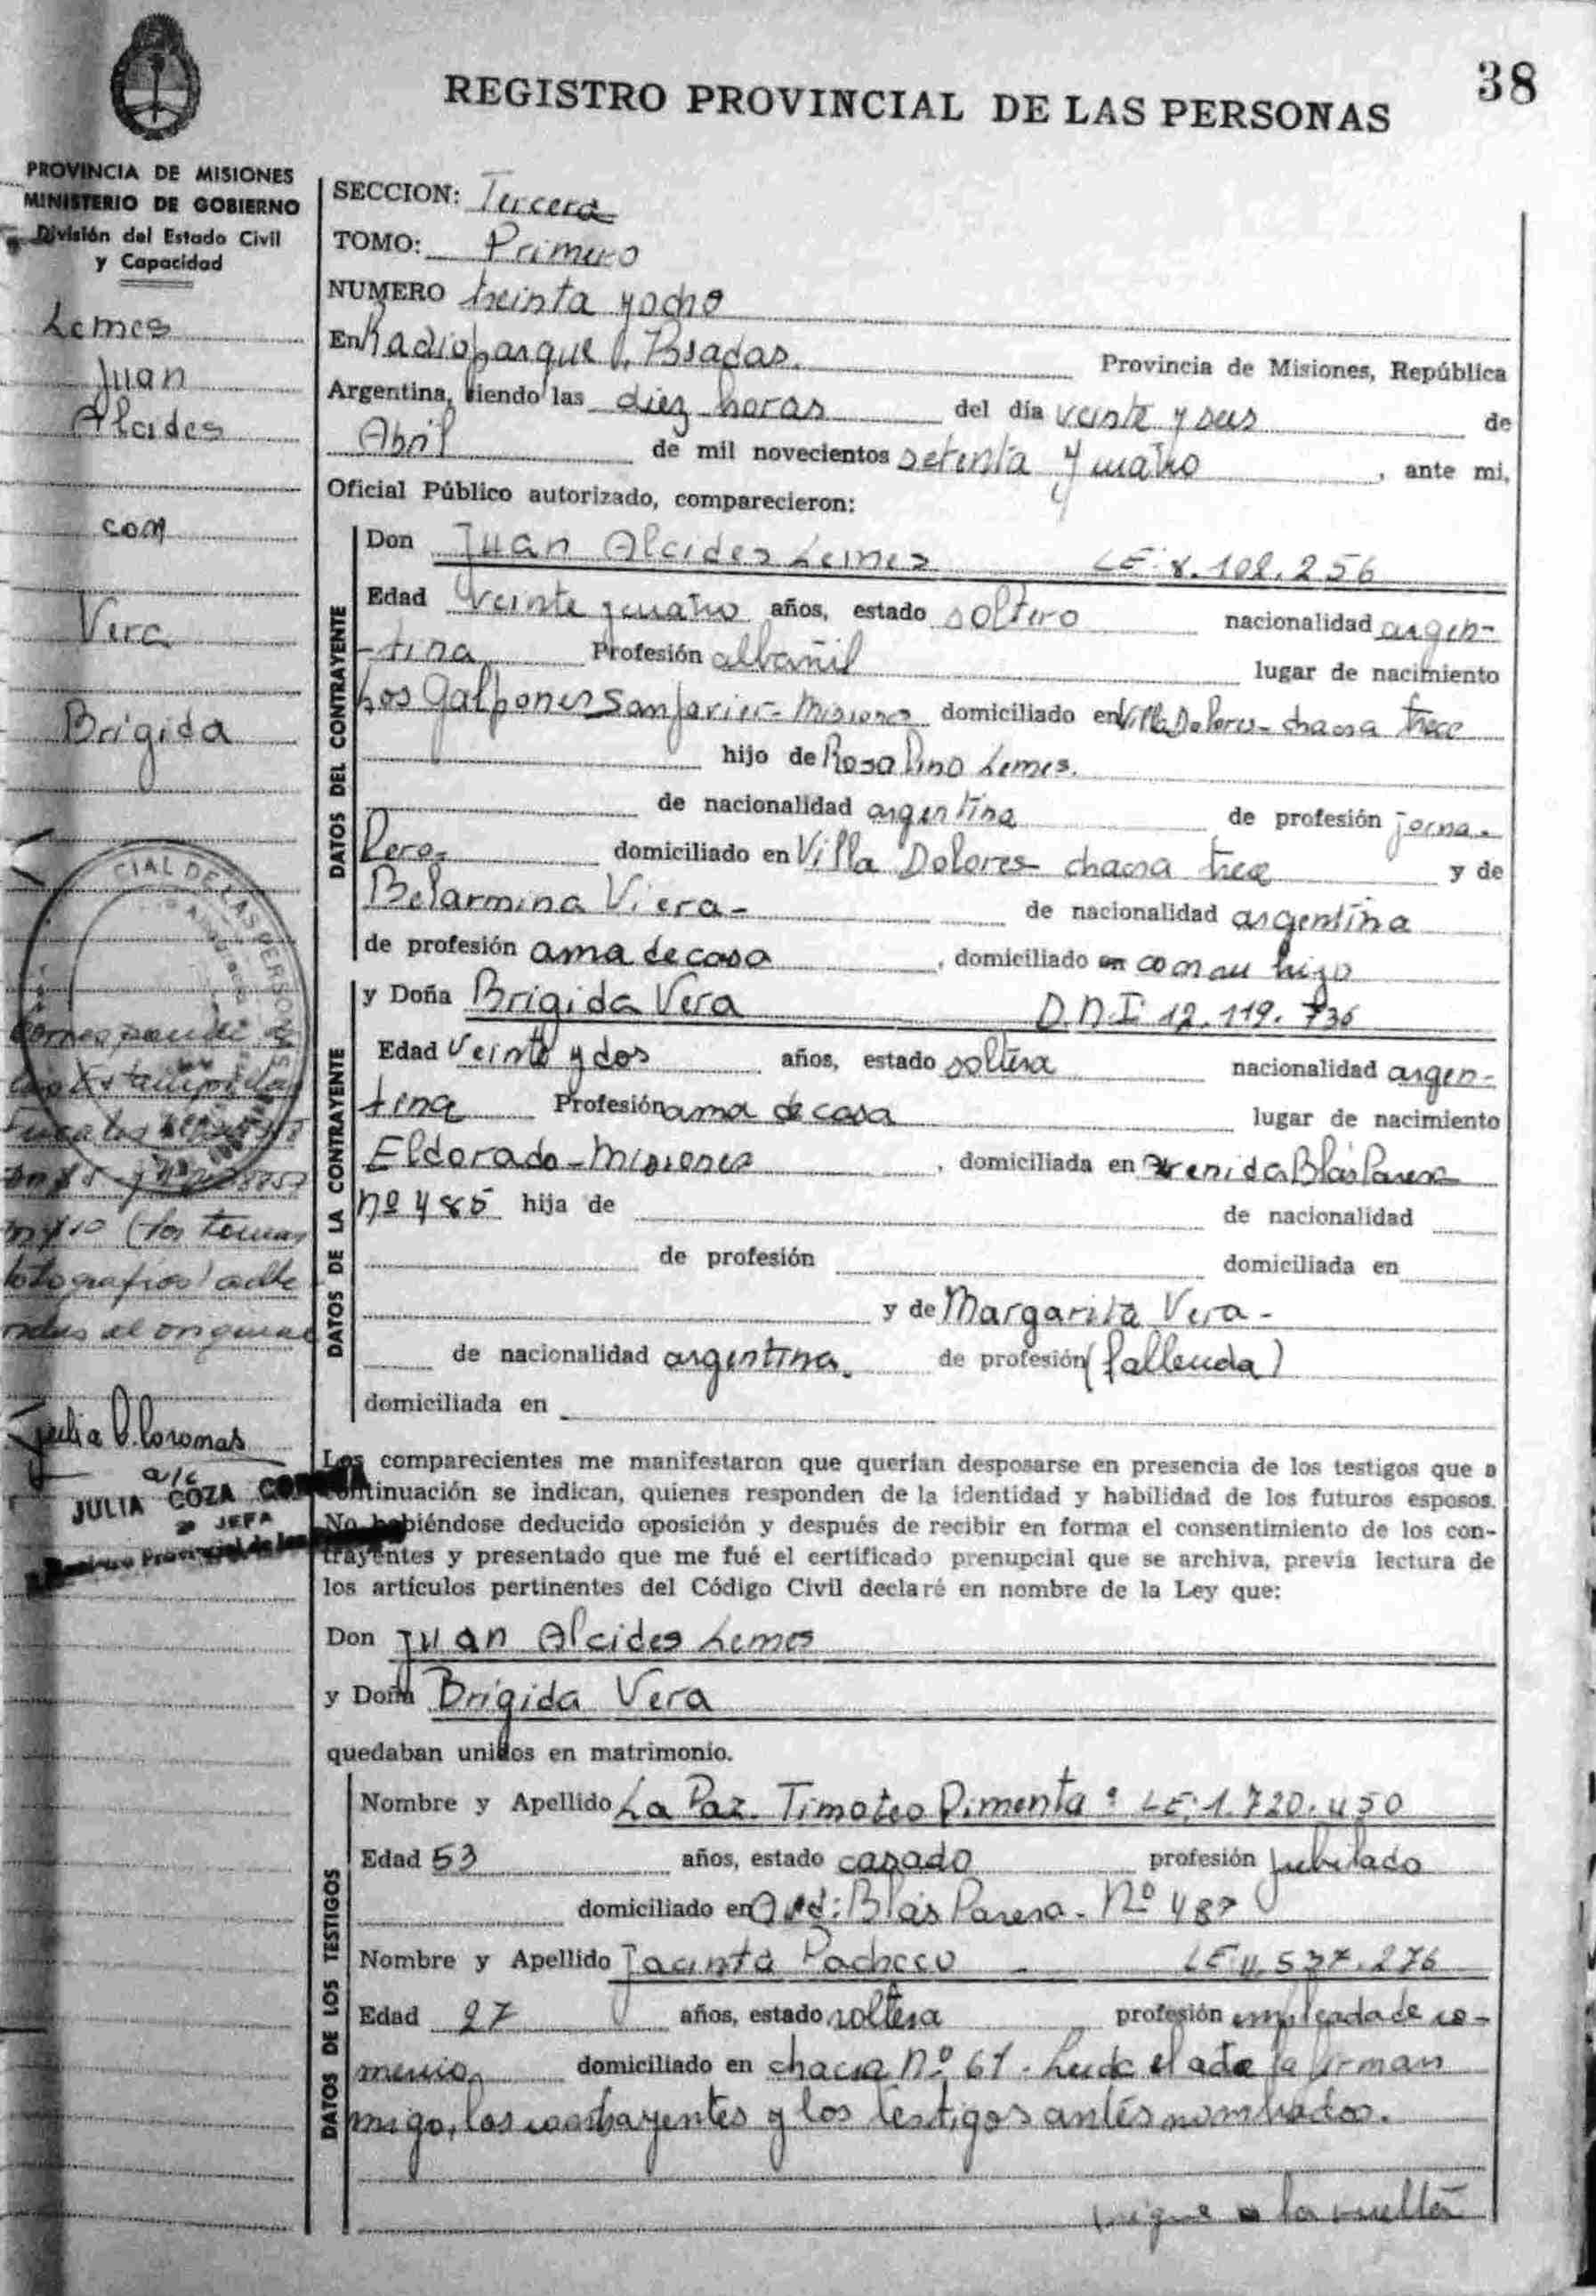 38
REGISTRO PROVINCIAL DE LAS PERSONAS
PROVINCIA DE MISIONES
MINISTERIO DE GOBIERNO
División del Estado Civil
y Capacidad
Lemes
Juan
Alcides
con
Vera
Brigida
CIAL DE LAS PERSONAS
Corresponde a
las Estampillas
Fiscales
los temas
fotografias adhe
ridas al original
Julia
a/c
JULIA COZA
JEFA
Provincial de las
SECCION: Tercera
TOMO: Primero
NUMERO treinta y ocho
En Radioparque, Posadas. Provincia de Misiones, República
Argentina, siendo las diez horas del día veinte y seis de
Abril de mil novecientos setenta y cuatro, ante mi,
Oficial Público autorizado, comparecieron:
DATOS DEL CONTRAYENTE
Don Juan Alcides Lemes LE: 8.102.256
Edad Veinte y cuatro años, estado soltero nacionalidad argen-
-tina Profesión albañil lugar de nacimiento
Los Galpones San Javier - Misiones domiciliado en Villa Dolores - chacra trece
hijo de Rosalino Lemes.
de nacionalidad argentina de profesión jorna-
lero. domiciliado en Villa Dolores - chacra trece y de
Belarmina Viera - de nacionalidad argentina
de profesión ama de casa, domiciliado en con su hijo
DATOS DE LA CONTRAYENTE
y Doña Brigida Vera D.N.I: 12.119.736
Edad Veinte y dos años, estado soltera nacionalidad argen-
tina Profesión ama de casa lugar de nacimiento
Eldorado - Misiones, domiciliada en avenida Blas Parera
Nº 485 hija de de nacionalidad
de profesión domiciliada en
y de Margarita Vera -
de nacionalidad argentina. de profesión (fallecida)
domiciliada en
Los comparecientes me manifestaron que querían desposarse en presencia de los testigos que a
continuación se indican, quienes responden de la identidad y habilidad de los futuros esposos.
No habiéndose deducido oposición y después de recibir en forma el consentimiento de los con-
trayentes y presentado que me fué el certificado prenupcial que se archiva, previa lectura de
los artículos pertinentes del Código Civil declaré en nombre de la Ley que:
Don Juan Alcides Lemes
y Doña Brigida Vera
quedaban unidos en matrimonio.
DATOS DE LOS TESTIGOS
Nombre y Apellido La Paz Timoteo Pimenta: LE: 1.720.450
Edad 53 años, estado casado profesión jubilado
domiciliado en Avd: Blas Parera - Nº 487
Nombre y Apellido Jacinta Pacheco LE: 4.537.276
Edad 27 años, estado soltera profesión empleada de co-
mercio, domiciliado en chacra Nº 61. Leida el acta la firman
migo, los contrayentes y los testigos antes nombrados.
sigue a la vuelta